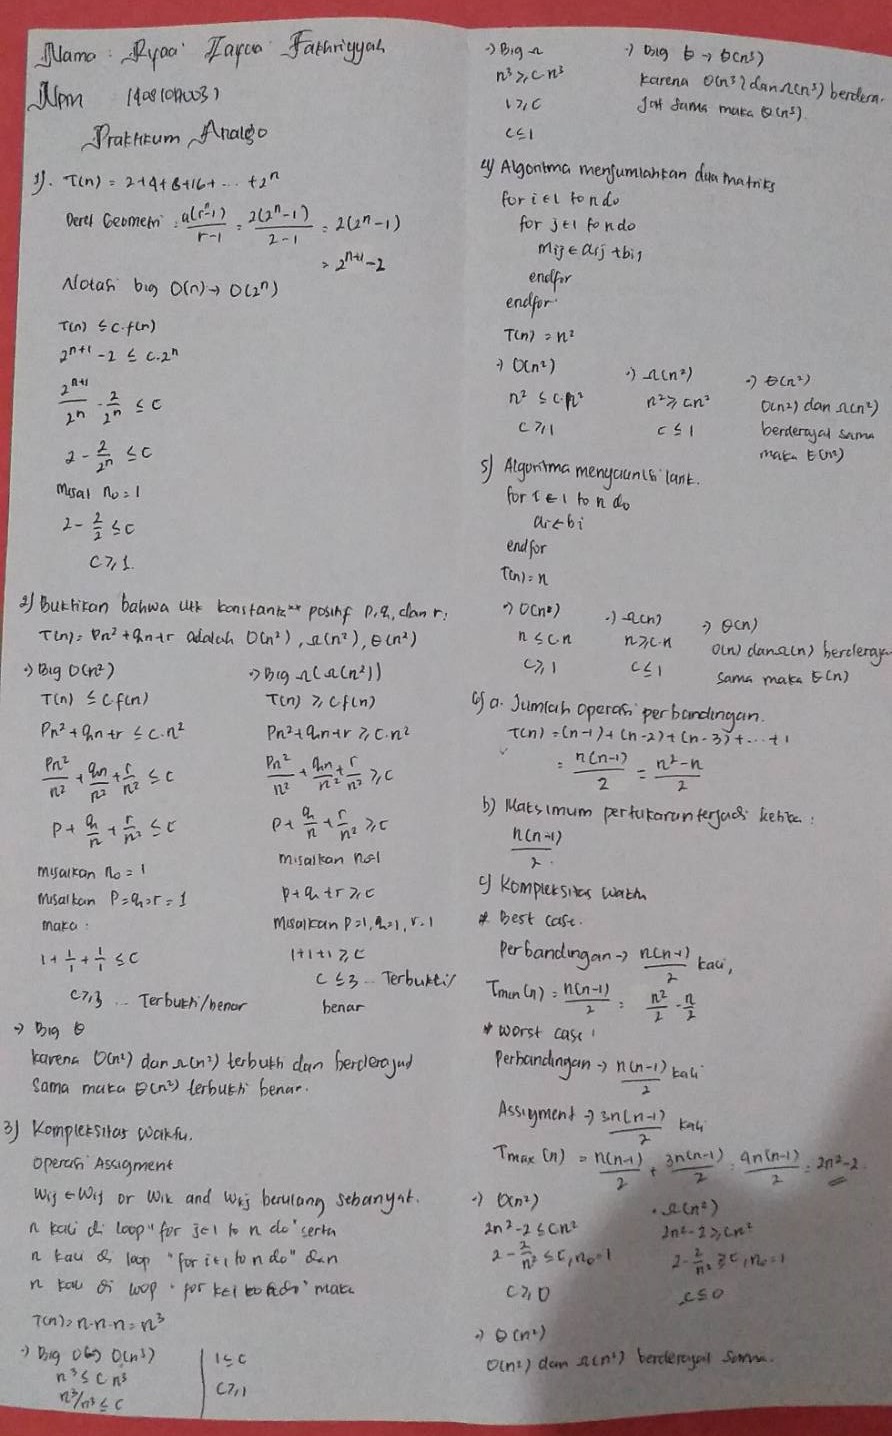 Nama : Ryaa' Zayaa Fathriyyah
Npm
Praktikum Analgo
1). T(n) = 2+4+8+16+ ... +2^n
Deret Geometri = a(r^n-1)/r-1 = 2(2^n-1)/2-1 = 2(2^n-1)
= 2^n+1 - 2
Notasi big O(n) → O(2^n)
T(n) ≤ c.f(n)
2^n+1 - 2 ≤ c.2^n
2^n+1/2^n - 2/2^n ≤ c
2 - 2/2^n ≤ c
Misal n0 = 1
2 - 2/2 ≤ c
c ≥ 1.
2) Buktikan bahwa utk konstanta" positif p, q, dan r:
T(n) = Pn² + qn + r adalah O(n²), Ω(n²), Θ(n²)
→ Big O(n²)
T(n) ≤ c f(n)
Pn² + qn + r ≤ c.n²
Pn²/n² + qn/n² + r/n² ≤ c
P + q/n + r/n² ≤ c
misalkan n0 = 1
misalkan P=q=r=1
maka :
1 + 1/1 + 1/1 ≤ c
c ≥ 3 ... Terbukti/benar
→ Big Ω (Ω(n²))
T(n) ≥ c f(n)
Pn² + qn + r ≥ c.n²
Pn²/n² + qn/n² + r/n² ≥ c
P + q/n + r/n² ≥ c
misalkan n0=1
p + q + r ≥ c
Misalkan P=1, q=1, r=1
1+1+1 ≥ c
c ≤ 3 ... Terbukti/
benar
→ Big Θ
karena O(n²) dan Ω(n²) terbukti dan berderajad
sama maka Θ(n²) terbukti benar.
3) Kompleksitas waktu.
Operasi Assigment
Wij ← Wij or Wik and Wkj berulang sebanyak.
n kali di loop "for j←1 to n do" serta
n kali di loop "for i←1 to n do" dan
n kali di loop "for k←1 to n do" maka
T(n) = n.n.n = n³
→ Big O → O(n³)
n³ ≤ c n³
n³/n³ ≤ c
1 ≤ c
c ≥ 1
→ Big Ω
n³ ≥ c n³
1 ≥ c
c ≤ 1
→ Big Θ → Θ(n³)
karena O(n³) dan Ω(n³) berdera-
jat sama maka Θ(n³).
4) Algoritma menjumlahkan dua matriks
for i ← 1 to n do
for j ← 1 to n do
mij ← aij + bij
endfor
endfor
T(n) = n²
→ O(n²)
n² ≤ c.n²
c ≥ 1
→ Ω(n²)
n² ≥ cn²
c ≤ 1
→ Θ(n²)
O(n²) dan Ω(n²)
berderajat sama
maka Θ(n²)
5) Algoritma menyalin larik.
for i ← 1 to n do
ai ← bi
endfor
T(n) = n
→ O(n)
n ≤ c.n
c ≥ 1
→ Ω(n)
n ≥ c.n
c ≤ 1
→ Θ(n)
O(n) dan Ω(n) berderaja
sama maka Θ(n)
6) a. Jumlah operasi perbandingan.
T(n) = (n-1) + (n-2) + (n-3) + ... + 1
= n(n-1)/2 = n²-n/2
b) Maksimum pertukaran terjadi ketika :
n(n-1)/2.
c) Kompleksitas waktu
* Best case.
Perbandingan → n(n-1)/2 kali,
Tmin(n) = n(n-1)/2 = n²/2 - n/2
* Worst case :
Perbandingan → n(n-1)/2 kali
Assigment → 3n(n-1)/2 kali
Tmax (n) = n(n-1)/2 + 3n(n-1)/2 = 4n(n-1)/2 = 2n²-2
→ O(n²)
2n²-2 ≤ cn²
2 - 2/n² ≤ c, n0=1
c ≥ 0
• Ω(n²)
2n²-2 ≥ cn²
2 - 2/n² ≥ c, n0=1
c ≤ 0
→ Θ(n²)
O(n²) dan Ω(n²) berderajat sama.